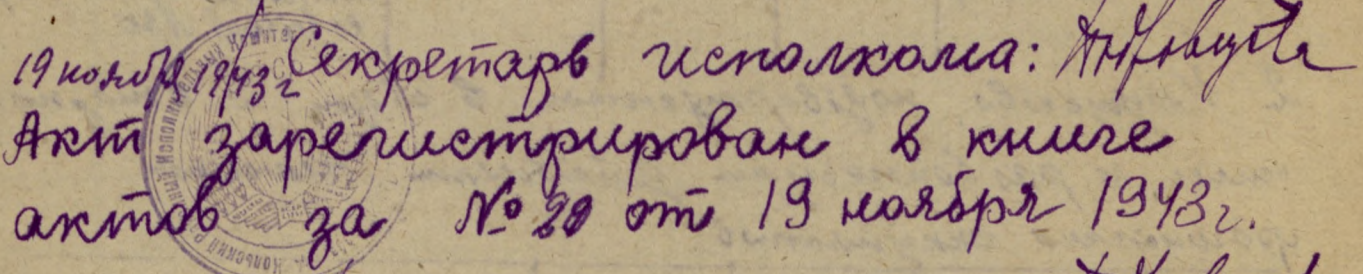 19 ноября 1943 г Секретарь исполкома:
Акт зарегистрирован в книге
актов за № 20 от 19 ноября 1943 г.